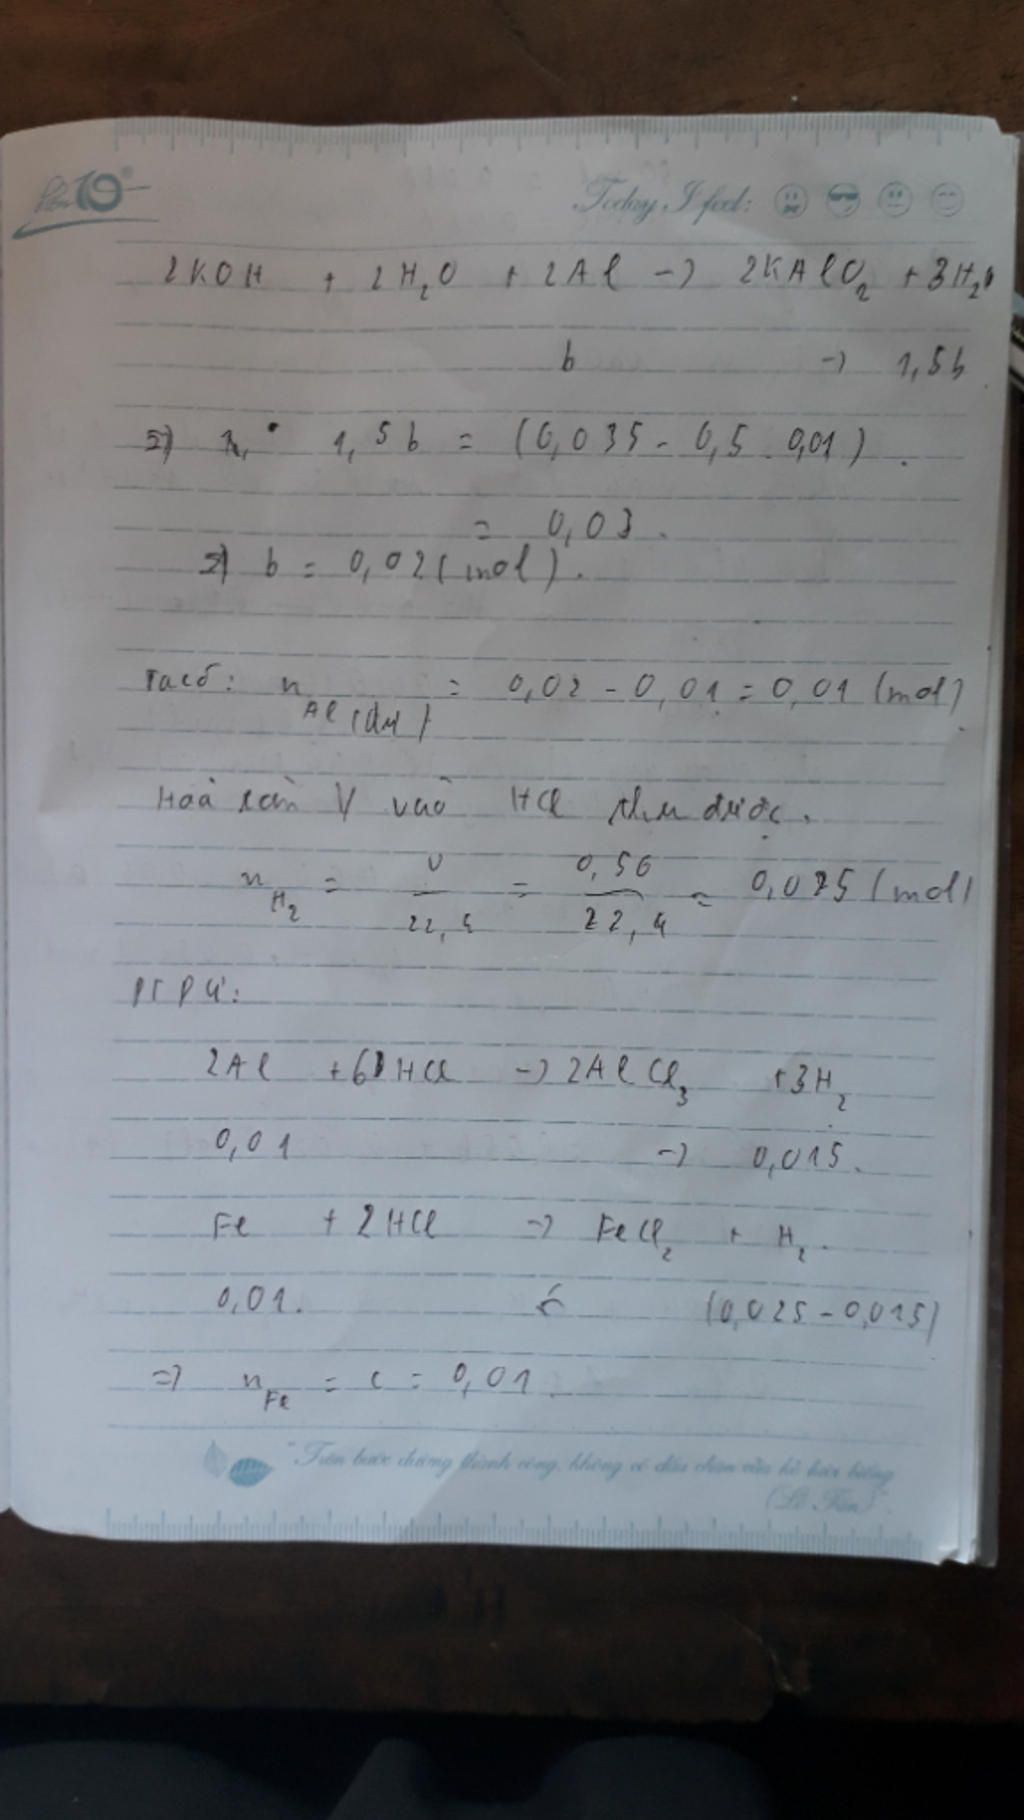 10
Today I feel:
2KOH + 2H₂O + 2Al -> 2KAlO₂ + 3H₂
b -> 1,5b
=> 1,5b = (0,035 - 0,5 . 0,01).
= 0,03.
=> b = 0,02 (mol).
Ta có: n Al (dư) = 0,02 - 0,01 = 0,01 (mol).
Hoà tan Y vào HCl thu được.
n H₂ = V/22,4 = 0,56/22,4 = 0,025 (mol)
PTPƯ:
2Al + 6HCl -> 2AlCl₃ + 3H₂
0,01 -> 0,015.
Fe + 2HCl -> FeCl₂ + H₂.
0,01. <- (0,025 - 0,015)
=> n Fe = c = 0,01.
"Trên bước đường thành công, không có dấu chân của kẻ lười biếng
(Lỗ Tấn)"